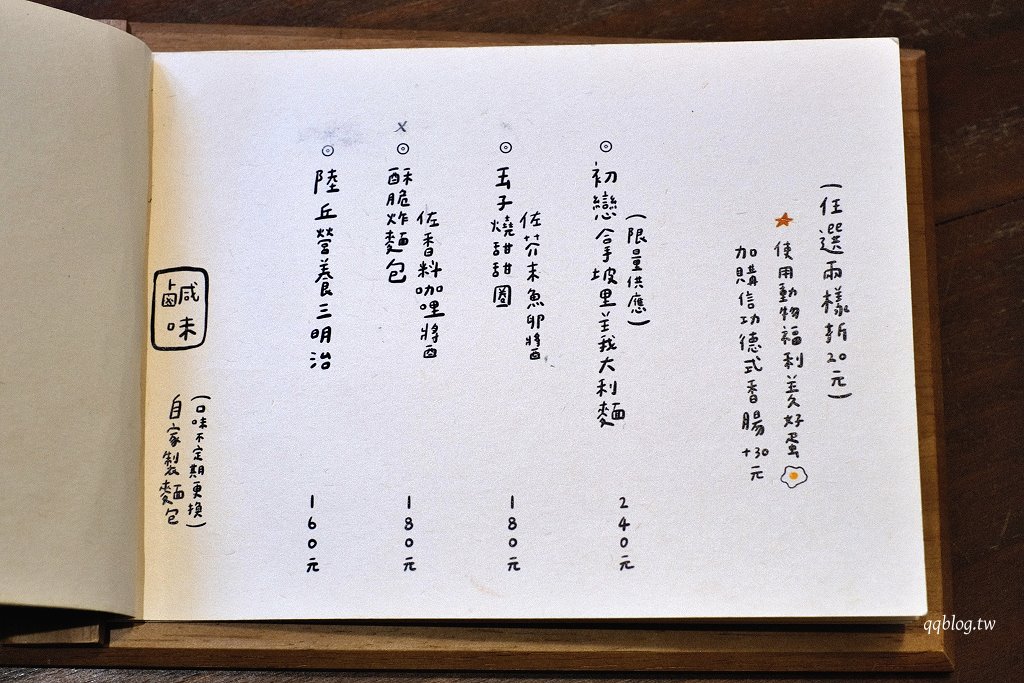 鹹味
自家製麵包
(口味不定期更換)
陸丘營養三明治 160元
x
酥脆炸麵包 180元
佐香料咖哩醬
玉子燒甜甜圈 180元
佐芥末魚卵醬
初戀拿坡里義大利麵 240元
(限量供應)
加購信功德式香腸+30元
使用動物福利友好蛋
(任選兩樣折20元)
qqblog.tw